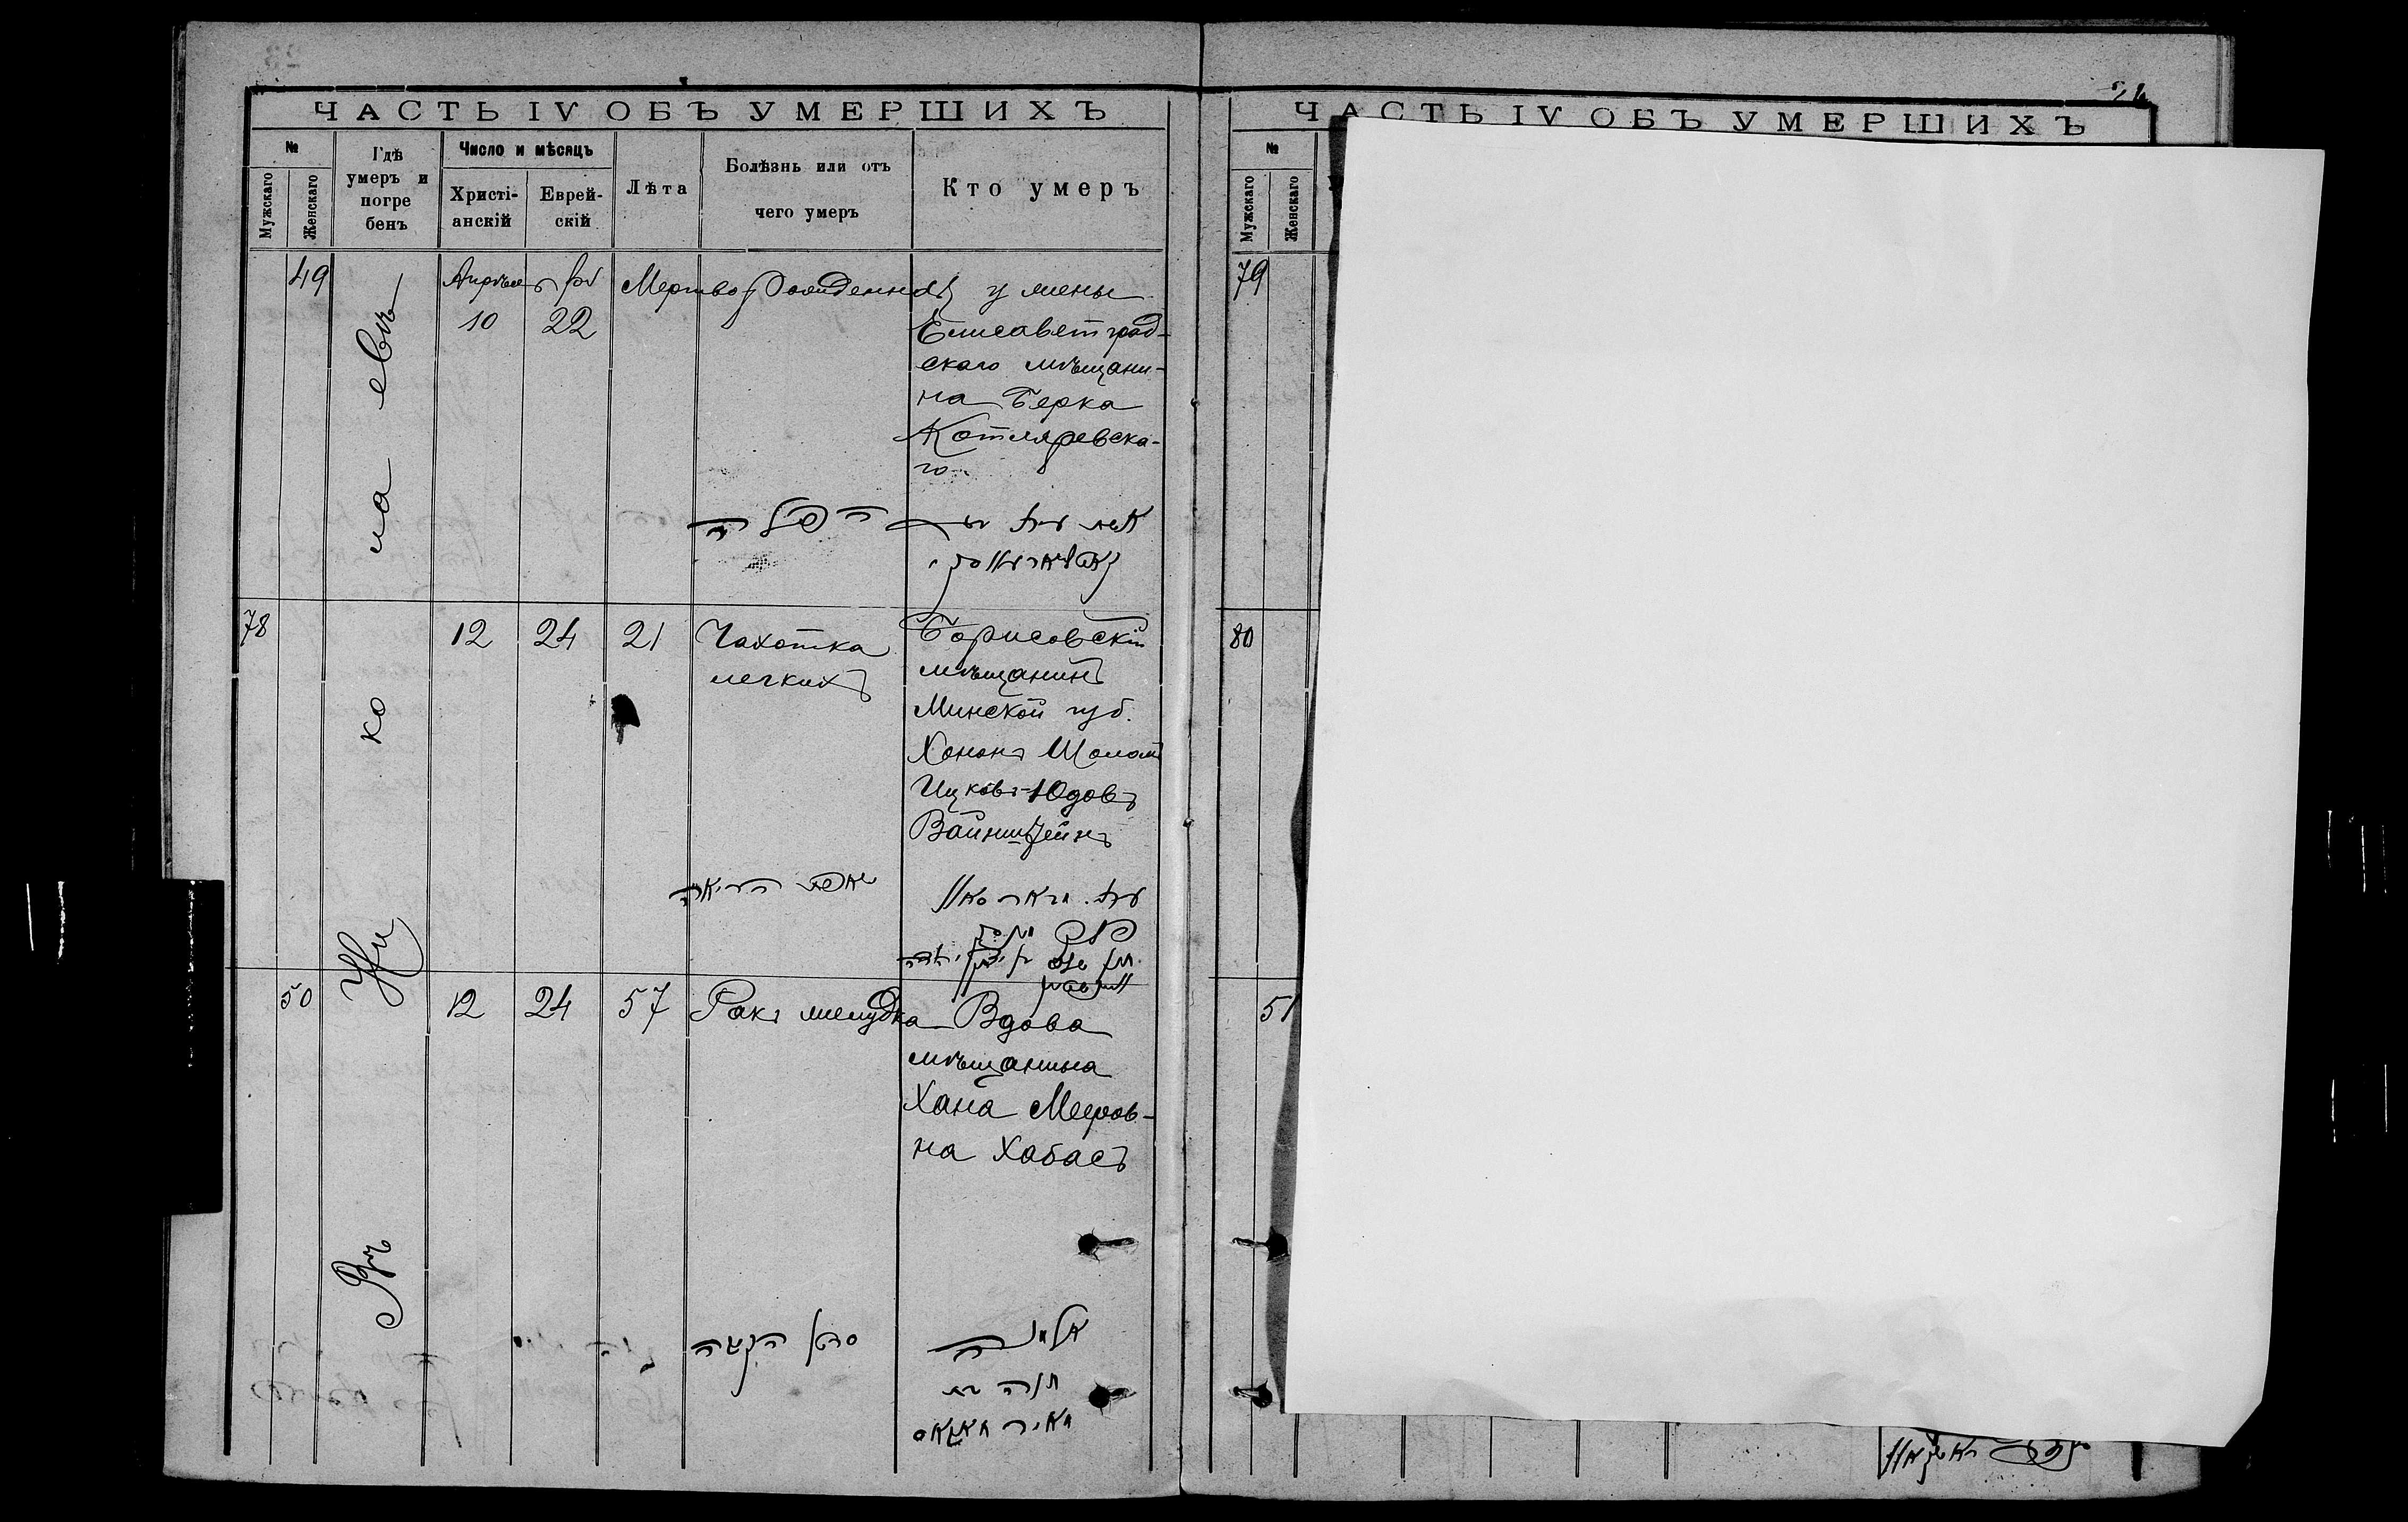 ЧАСТЬ IV ОБЪ УМЕРШИХЪ
№
Мужскаго
Женскаго
Гдѣ
умеръ и
погре
бенъ
Число и мѣсяцъ
Христі-
анскій
Еврей-
скій
Лѣта
Болѣзнь или отъ
чего умеръ
Кто умеръ
Въ
Ни
ко
ла
евѣ
49
Апрѣля
10
22
Мертворожденный
у жены
Елисаветград-
скаго мѣщани-
на Берка
Котляревска-
го
78
12
24
21
Чахотка
легкихъ
Борисовскій
мѣщанинъ
Минской губ.
Хононъ Шоломъ
Ицковъ-Юдовъ
Вайнштейнъ
50
12
24
57
Ракъ желудка
Вдова
мѣщанина
Хана Мееров-
на Хабасъ
סרטן הקבה
אלמנה
חנה בת
מאיר חאבאס
ЧАСТЬ IV ОБЪ УМЕРШИХЪ
№
Мужскаго
Женскаго
79
80
51